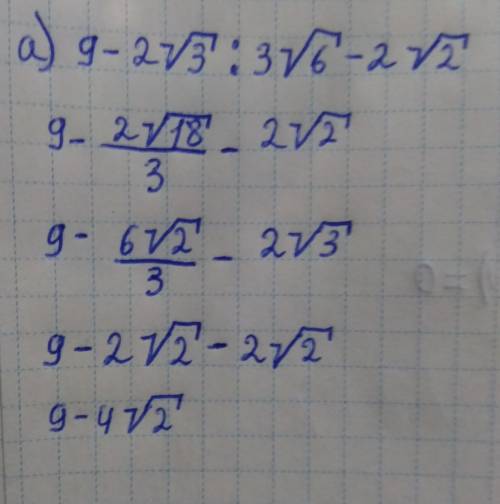 а) 9 - 2√3 : 3√6 - 2√2
9 - 2√18/3 - 2√2
9 - 6√2/3 - 2√3
9 - 2√2 - 2√2
9 - 4√2